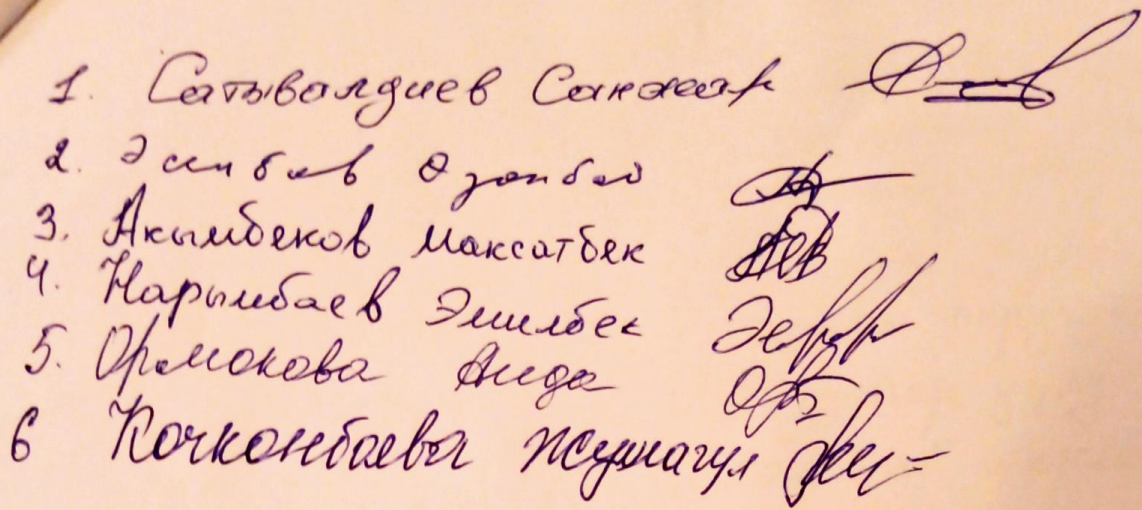 1. Сатывалдиев Санжар
2. Эсенбаев Озонбой
3. Акымбеков Максатбек
4. Нарымбаев Эмилбек
5. Ормокова Аида
6 Кочконбаева Жумагул